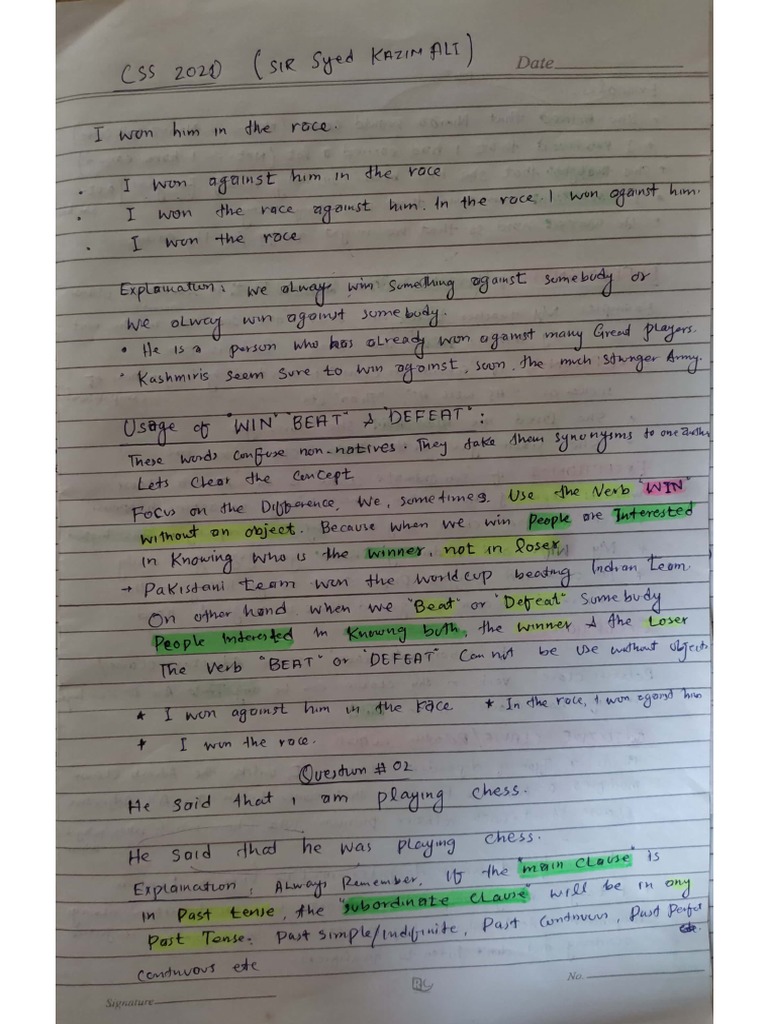 CSS 2020 (SIR Syed KAZIM ALI)
Date
I won him in the race.
. I won against him in the race
. I won the race against him. In the race I won against him.
. I won the race
Explaination: we alway win something against somebody or
we alway win against somebody.
• He is a person who has already won against many Great players.
• Kashmiris seem sure to win against, soon, the much stronger Army.
Usage of "WIN" "BEAT" & "DEFEAT":
These words confuse non-natives. They take them synonyms to one another
Lets clear the concept
Focus on the Difference. We, sometimes. Use the Verb "WIN"
without an object. Because when we win people are Interested
in Knowing who is the winner, not in loser
→ Pakistani team won the world cup beating Indian team.
On other hand when we "Beat" or "Defeat" Somebody
People Interested in Knowing both, the winner & the Loser
The Verb "BEAT" or "DEFEAT" Can not be use without object
* I won against him in the Race * In the race, I won against him
* I won the race.
Question # 02
He said that i am playing chess.
He said that he was playing chess.
Explaination, Always Remember, If the "main clause" is
in Past tense, the "subordinate clause" will be in any
Past Tense. Past simple/indifinite, Past continuous, Past Perfect
continuous etc
RC
No.
Signature